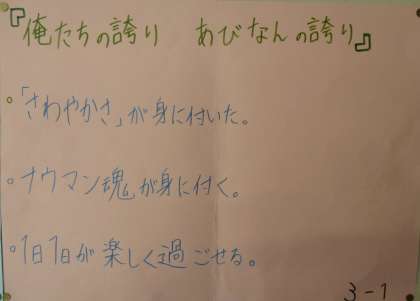 『俺たちの誇り　あびなんの誇り』
。「さわやかさ」が身に付いた。
。ナウマン魂が身に付く。
。1日1日が楽しく過ごせる。
3-1